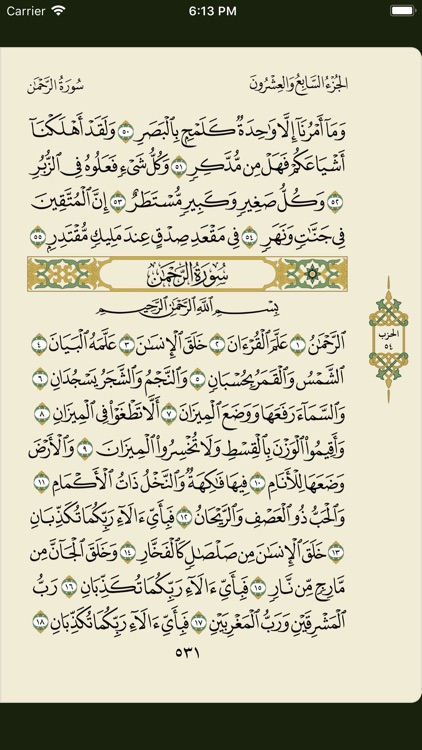 Carrier 6:13 PM
سُورَةُ الرَّحْمَٰن الجُزْءُ السَّابِعُ وَالعِشْرُونَ
وَمَآ أَمْرُنَآ إِلَّا وَٰحِدَةٌ كَلَمْحٍۭ بِٱلْبَصَرِ ٥٠ وَلَقَدْ أَهْلَكْنَآ
أَشْيَاعَكُمْ فَهَلْ مِن مُّدَّكِرٍ ٥١ وَكُلُّ شَىْءٍ فَعَلُوهُ فِى ٱلزُّبُرِ
٥٢ وَكُلُّ صَغِيرٍ وَكَبِيرٍ مُّسْتَطَرٌ ٥٣ إِنَّ ٱلْمُتَّقِينَ
فِى جَنَّٰتٍ وَنَهَرٍ ٥٤ فِى مَقْعَدِ صِدْقٍ عِندَ مَلِيكٍ مُّقْتَدِرٍۭ ٥٥
سُورَةُ الرَّحْمَٰن
بِسْمِ ٱللَّهِ ٱلرَّحْمَٰنِ ٱلرَّحِيمِ
ٱلرَّحْمَٰنُ ١ عَلَّمَ ٱلْقُرْءَانَ ٢ خَلَقَ ٱلْإِنسَٰنَ ٣ عَلَّمَهُ ٱلْبَيَانَ ٤
ٱلشَّمْسُ وَٱلْقَمَرُ بِحُسْبَانٍ ٥ وَٱلنَّجْمُ وَٱلشَّجَرُ يَسْجُدَانِ ٦
وَٱلسَّمَآءَ رَفَعَهَا وَوَضَعَ ٱلْمِيزَانَ ٧ أَلَّا تَطْغَوْا۟ فِى ٱلْمِيزَانِ ٨
وَأَقِيمُوا۟ ٱلْوَزْنَ بِٱلْقِسْطِ وَلَا تُخْسِرُوا۟ ٱلْمِيزَانَ ٩ وَٱلْأَرْضَ
وَضَعَهَا لِلْأَنَامِ ١٠ فِيهَا فَٰكِهَةٌ وَٱلنَّخْلُ ذَاتُ ٱلْأَكْمَامِ ١١
وَٱلْحَبُّ ذُو ٱلْعَصْفِ وَٱلرَّيْحَانُ ١٢ فَبِأَىِّ ءَالَآءِ رَبِّكُمَا تُكَذِّبَانِ
١٣ خَلَقَ ٱلْإِنسَٰنَ مِن صَلْصَٰلٍ كَٱلْفَخَّارِ ١٤ وَخَلَقَ ٱلْجَآنَّ مِن
مَّارِجٍ مِّن نَّارٍ ١٥ فَبِأَىِّ ءَالَآءِ رَبِّكُمَا تُكَذِّبَانِ ١٦ رَبُّ
ٱلْمَشْرِقَيْنِ وَرَبُّ ٱلْمَغْرِبَيْنِ ١٧ فَبِأَىِّ ءَالَآءِ رَبِّكُمَا تُكَذِّبَانِ ١٨
٥٣١
الحزب
٥٤